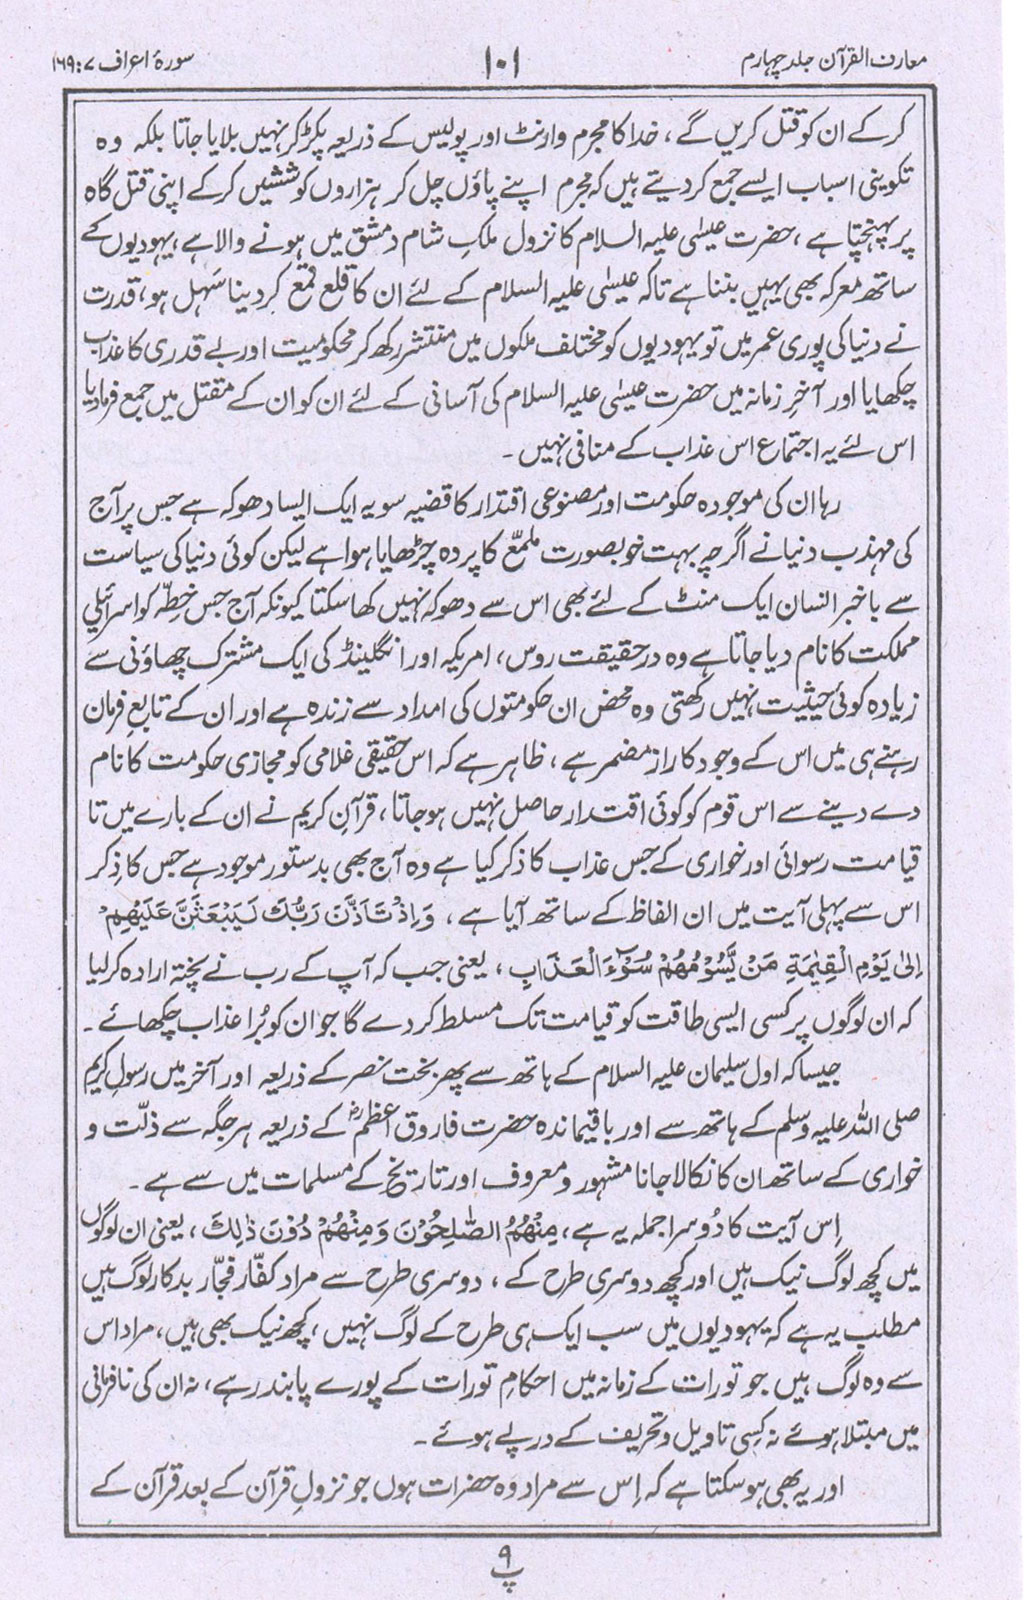 معارف القرآن جلد چہارم
۱۰۱
سورۂ اعراف ۷: ۱۶۹
کرکے ان کو قتل کریں گے، خدا کا مجرم وارنٹ اور پولیس کے ذریعہ پکڑ کر نہیں بلایا جاتا بلکہ وہ
تکوینی اسباب ایسے جمع کر دیتے ہیں کہ مجرم اپنے پاؤں چل کر ہزاروں کوششیں کرکے اپنی قتل گاہ
پر پہنچتا ہے، حضرت عیسٰی علیہ السلام کا نزول ملکِ شام دمشق میں ہونے والا ہے، یہودیوں کے
ساتھ معرکہ بھی یہیں بننا ہے تاکہ عیسٰی علیہ السلام کے لئے ان کا قلع قمع کر دینا سَہل ہو، قدرت
نے دنیا کی پوری عمر میں تو یہودیوں کو مختلف ملکوں میں منتشر رکھ کر محکومیت اور بے قدری کا عذاب
چکھایا اور آخرِ زمانہ میں حضرت عیسٰی علیہ السلام کی آسانی کے لئے ان کو ان کے مقتل میں جمع فرمادیا
اس لئے یہ اجتماع اس عذاب کے منافی نہیں۔
رہا ان کی موجودہ حکومت اور مصنوعی اقتدار کا قضیہ سو یہ ایک ایسا دھوکہ ہے جس پر آج
کی مہذب دنیا نے اگرچہ بہت خوبصورت ملمّع کا پردہ چڑھایا ہوا ہے لیکن کوئی دنیا کی سیاست
سے باخبر انسان ایک منٹ کے لئے بھی اس سے دھوکہ نہیں کھا سکتا کیونکہ آج جس خطّہ کو اسرائیلی
مملکت کا نام دیا جاتا ہے وہ درحقیقت روس، امریکہ اور انگلینڈ کی ایک مشترک چھاؤنی سے
زیادہ کوئی حیثیت نہیں رکھتی وہ محض ان حکومتوں کی امداد سے زندہ ہے اور ان کے تابعِ فرمان
رہنے ہی میں اس کے وجود کا راز مضمر ہے، ظاہر ہے کہ اس حقیقی غلامی کو مجازی حکومت کا نام
دے دینے سے اس قوم کو کوئی اقتدار حاصل نہیں ہو جاتا، قرآنِ کریم نے ان کے بارے میں تا
قیامت رسوائی اور خواری کے جس عذاب کا ذکر کیا ہے وہ آج بھی بدستور موجود ہے جس کا ذِکر
اس سے پہلی آیت میں ان الفاظ کے ساتھ آیا ہے، وَاِذْ تَاَذَّنَ رَبُّكَ لَيَبْعَثَنَّ عَلَيْهِمْ
اِلٰى يَوْمِ الْقِيٰمَةِ مَنْ يَّسُوْمُهُمْ سُوْٓءَ الْعَذَابِ، یعنی جب کہ آپ کے رب نے پختہ ارادہ کرلیا
کہ ان لوگوں پر کسی ایسی طاقت کو قیامت تک مسلط کر دے گا جو ان کو بُرا عذاب چکھائے۔
جیسا کہ اول سلیمان علیہ السلام کے ہاتھ سے پھر بخت نصر کے ذریعہ اور آخر میں رسولِ کریم
صلی اللہ علیہ وسلم کے ہاتھ سے اور باقیماندہ حضرت فاروق اعظمؓ کے ذریعہ ہر جگہ سے ذلّت و
خواری کے ساتھ ان کا نکالا جانا مشہور و معروف اور تاریخ کے مسلمات میں سے ہے۔
اِس آیت کا دُوسرا جملہ یہ ہے، مِنْهُمُ الصّٰلِحُوْنَ وَمِنْهُمْ دُوْنَ ذٰلِكَ، یعنی ان لوگوں
میں کچھ لوگ نیک ہیں اور کچھ دوسری طرح کے، دوسری طرح سے مراد کفّار فجّار بدکار لوگ ہیں
مطلب یہ ہے کہ یہودیوں میں سب ایک ہی طرح کے لوگ نہیں، کچھ نیک بھی ہیں، مراد اس
سے وہ لوگ ہیں جو تورات کے زمانہ میں احکامِ تورات کے پورے پابند رہے، نہ ان کی نافرمانی
میں مبتلا ہوئے نہ کِسی تاویل و تحریف کے درپے ہوئے۔
اور یہ بھی ہوسکتا ہے کہ اِس سے مراد وہ حضرات ہوں جو نزولِ قرآن کے بعد قرآن کے
۹
پ